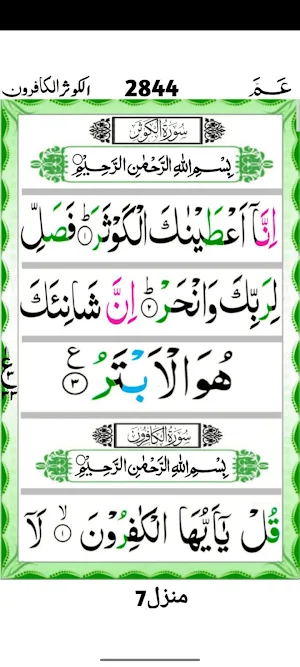 الكوثر الكافرون 2844 عَمَّ
سُوْرَةُ الْكَوْثَرِ
بِسْمِ اللهِ الرَّحْمٰنِ الرَّحِيْمِ
اِنَّاۤ اَعْطَيْنٰكَ الْكَوْثَرَؕ۝۱ فَصَلِّ
لِرَبِّكَ وَانْحَرْؕ۝۲ اِنَّ شَانِئَكَ
هُوَ الْاَبْتَرُ۝۳ ع
سُوْرَةُ الْكَافِرُوْنَ
بِسْمِ اللهِ الرَّحْمٰنِ الرَّحِيْمِ
قُلْ يٰۤاَيُّهَا الْكٰفِرُوْنَۙ۝۱ لَاۤ
منزل7